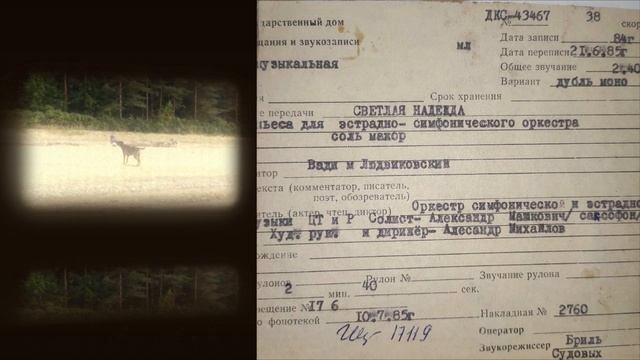 ДКС-43467 38 скор
ударственный дом № 
Дата записи 84г
щания и звукозаписи мл Дата переписи 21.6.85г
узыкальная Общее звучание 2,40
Вариант дубль моно
Срок хранения
е передачи СВЕТЛАЯ НАДЕЖДА
ьеса для эстрадно- симфонического оркестра
соль мажор
тор Вади м Людвиковский
екста (комментатор, писатель,
поэт, обозреватель)
Оркестр симфонической и эстрадно
тель (актер, чтец, диктор)
узыки ЦТ и Р Солист- Александр Машкович/ саксофон/
Худ. рук и дирижёр- Алесандр Михайлов
ождение
улонов 2 Рулон № Звучание рулона
мин. 40 сек.
рещение №17 6
о фонотекой 10.7.85г Накладная № 2760
17119 Оператор
Звукорежиссер Бриль
Судовых